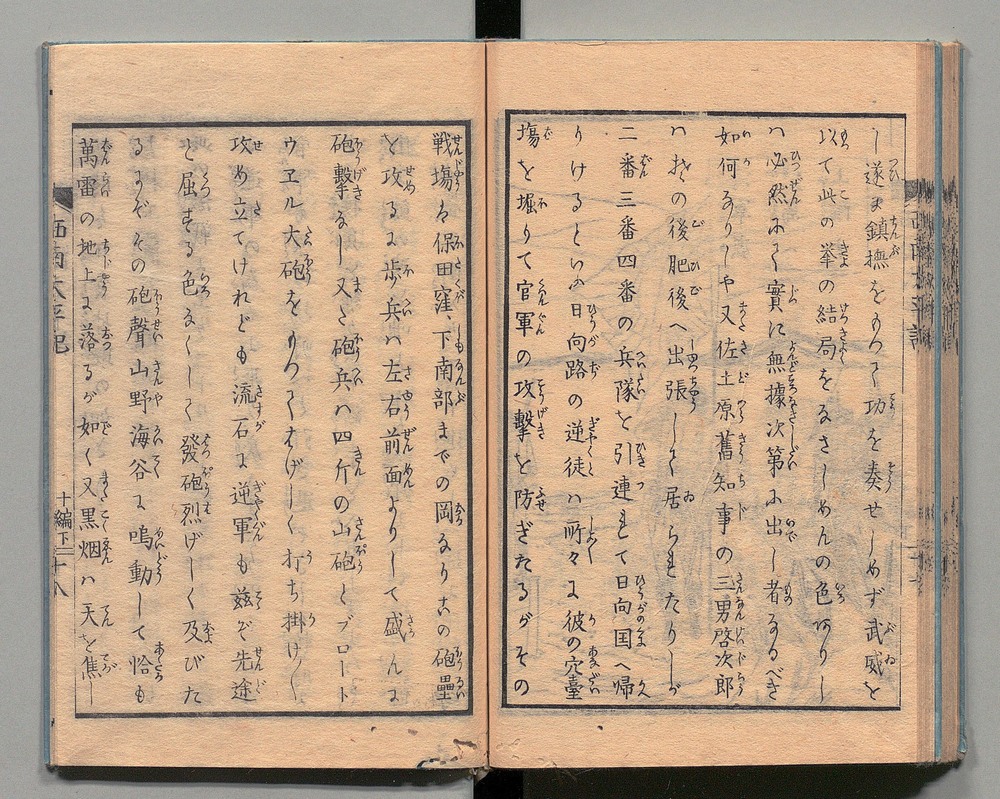 し遂に鎮撫をもつて功を奏せしめず武威を
以て此の挙の結局をなさしめんの色あり し
ハ必然にて實に無據次第に出し者なるべき
如何なりしや又佐土原舊知事の三男啓次郎
ハ其の後肥後へ出張しく居られたりしが
二番三番四番の兵隊を引連れて日向国へ帰
りけるといふ日向路の逆徒ハ所々に彼の穴臺
場を堀りて官軍の攻撃を防ぎたるがその
戦場は保田窪下南部までの岡なり古の砲壘
を攻るに歩兵ハ左右前面よりして盛んに
砲撃なし又た砲兵ハ四斤の山砲とブロート
ウヱル大砲をもつてはげしく打ち掛けく
攻め立てけれども流石に逆軍も茲ぞ先途
と屈する色なくして發砲烈げしく及びた
るにぞその砲聲山野海谷に鳴動して恰も
萬雷の地上に落るが如く又黒烟ハ天を焦し
西南太平記
十編下 十八